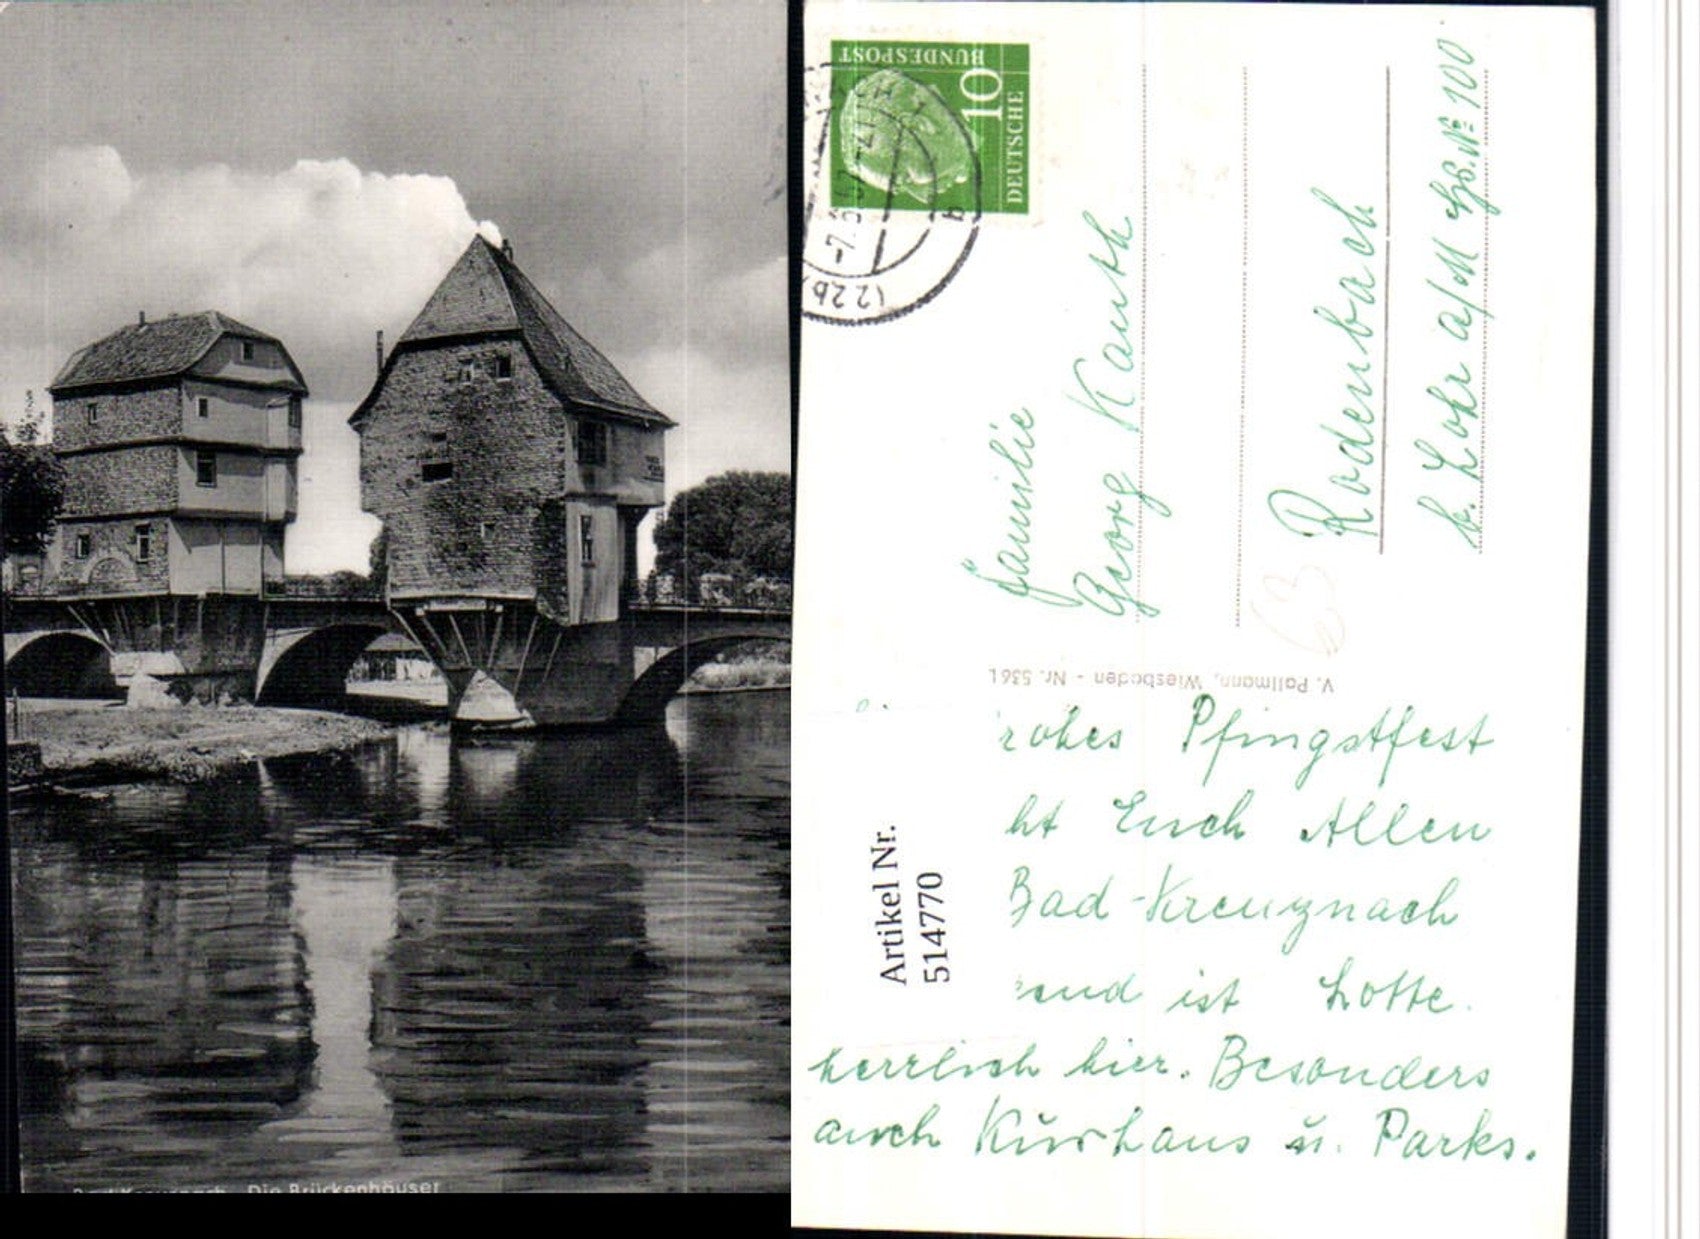 Bad Kreuznach Die Brückenhäuser
DEUTSCHE
BUNDESPOST
10
(22b)
b
Familie
Georg Kauth
Rodenbach
b. Lohr a/M Hs. № 100
63
V. Pollmann, Wiesbaden - Nr. 536 L
rohes Pfingstfest
ht Euch Allen
Bad-Kreuznach
end ist Lotte.
herrlich hier. Besonders
auch Kurhaus u. Parks.
Artikel Nr.
514770